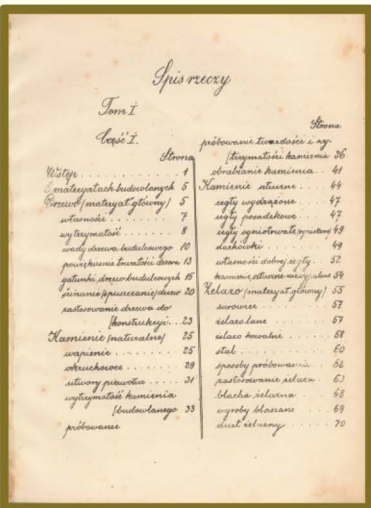 Spis rzeczy
Tom I.
Część I.
Strona
Wstęp 1
O materyałach budowlanych 5
Drzewo (materyał główny) 5
własności 7
wytrzymałość 8
wady drzewa budulcowego 10
powiększenie trwałości drzewa 13
gatunki drzew budulcowych 15
ścinanie (spuszczanie) drzew 20
zastosowanie drzewa do
[konstrukcyi 23
Kamienie (naturalne) 25
wapienie 25
okruchowce 29
utwory pierwotne 31
wytrzymałość kamienia
[budowlanego 33
próbowanie
Strona
próbowanie twardości i wy-
[trzymałości kamienia 36
obrabianie kamienia 41
Kamienie sztuczne 44
cegły wydrążone 47
cegły posadzkowe 47
cegły ogniotrwałe 49
dachówki 49
własności dobrej cegły 52
kamienie sztuczne niewypalane 54
Żelazo (materyał główny) 55
surowiec 57
żelazo lane 57
żelazo kowalne 58
stal 60
sposoby próbowania 62
zastosowanie żelaza 63
blacha żelazna 68
wyroby blaszane 69
drut żelazny 70